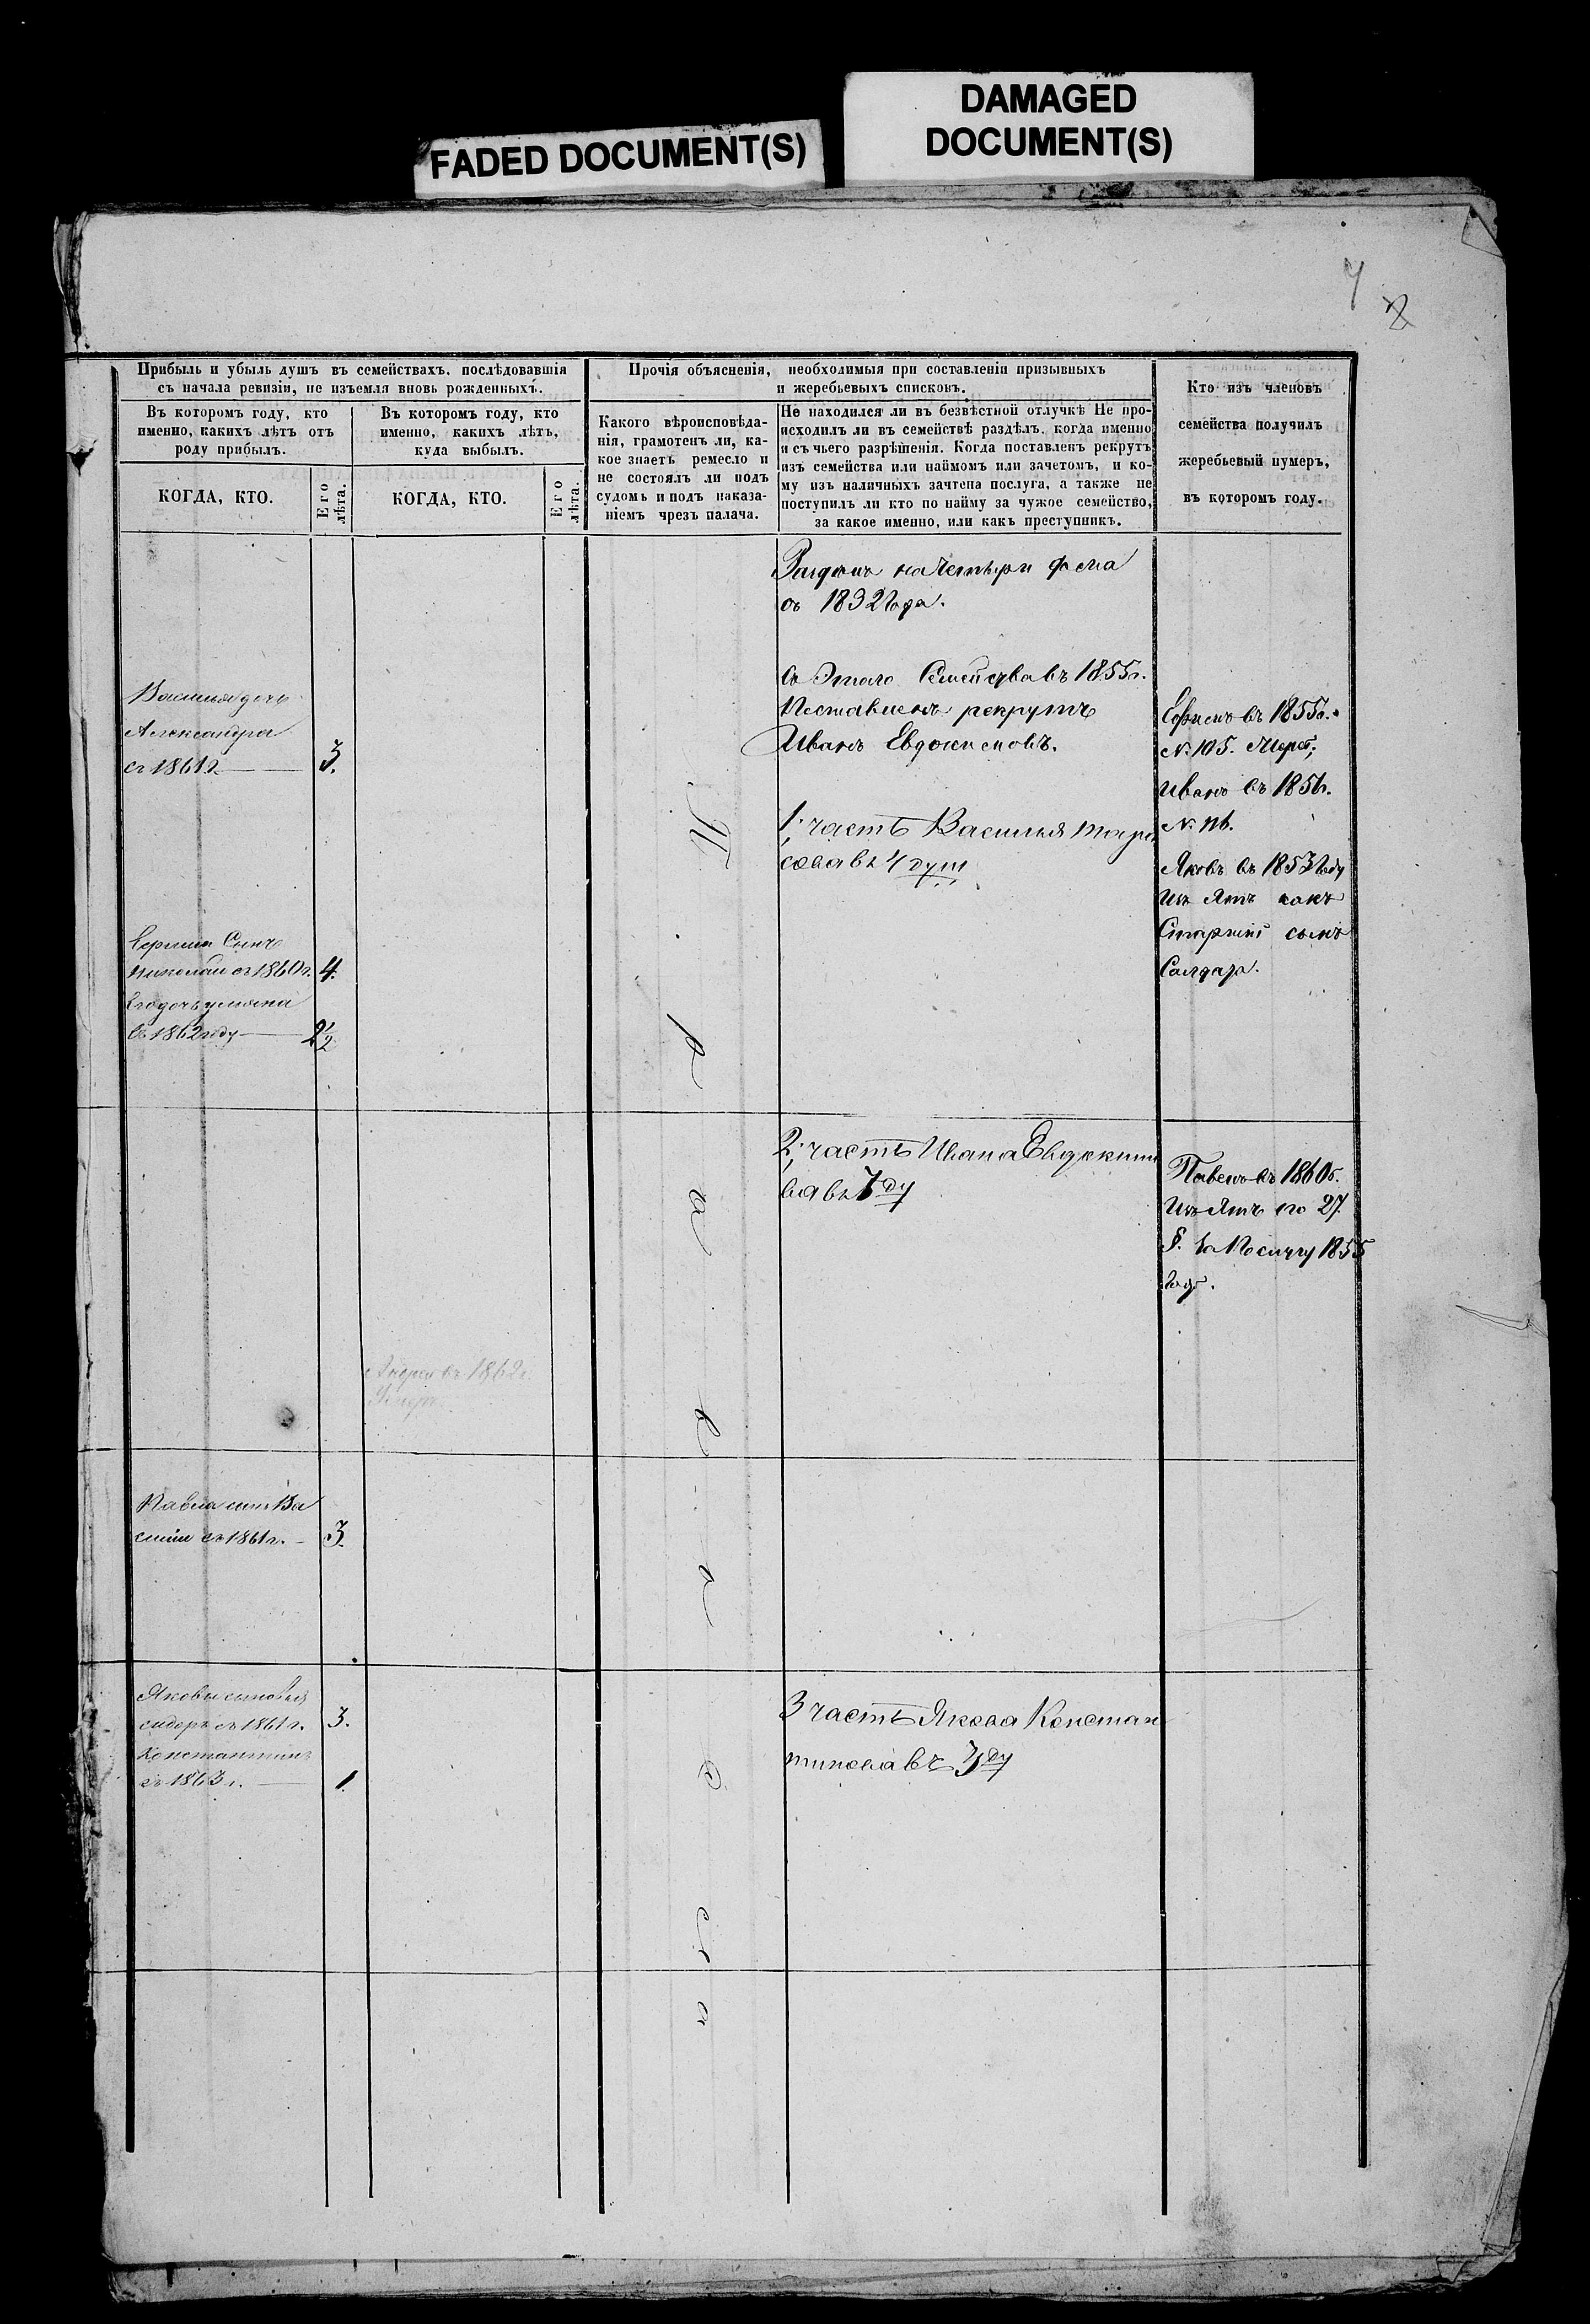 DAMAGED
DOCUMENT(S)
FADED DOCUMENT(S)
Прибыль и убыль душъ въ семействахъ, послѣдовавшія
съ начала ревизіи, не изъемля вновь рожденныхъ.
Въ которомъ году, кто
именно, какихъ лѣтъ отъ
роду прибылъ.
КОГДА, КТО.
Его
лѣта.
Въ которомъ году, кто
именно, какихъ лѣтъ,
куда выбылъ.
КОГДА, КТО.
Его
лѣта.
Прочія объясненія, необходимыя при составленіи призывныхъ
и жеребьевыхъ списковъ.
Какого вѣроисповѣда-
нія, грамотенъ ли, ка-
кое знаетъ ремесло и
не состоялъ ли подъ
судомъ и подъ наказа-
ніемъ чрезъ палача.
Не находился ли въ безвѣстной отлучкѣ Не про-
исходилъ ли въ семействѣ раздѣлъ, когда именно
и съ чьего разрѣшенія. Когда поставленъ рекрутъ
изъ семейства или наймомъ или зачетомъ, и ко-
му изъ наличныхъ зачтена послуга, а также не
поступилъ ли кто по найму за чужое семейство,
за какое именно, или какъ преступникъ.
Кто изъ членовъ
семейства получилъ
жеребьевый нумеръ,
въ которомъ году.
Василья дочь
Александра
съ 1861 г. 3.
сынъ
Николай съ 1860 г. 4.
съ 1862 году 2 1/2
Андрей въ 1862 г.
Павла сынъ Ва
силій съ 1861 г. 3.
Якова сыновья
сидоръ съ 1861 г. 3.
Константинъ
съ 1863 г. 1.
на четыри
съ 1832 года.
Съ Этаго Семейства въ 1855 г.
Поставленъ рекрутъ
Иванъ Евдокимовъ.
1. часть Василья Тара
сова въ 4 душ
2. часть Ивана Евдоким
ва въ 7 ду
3 часть Якова Констан
тинова въ 3 ду
въ 1855 г.
N. 105.
Иванъ въ
N.
Яковъ въ 1853 году
какъ
Старшій сынъ
Салдата.
Павелъ въ 1860 г.
по 27
§. за 1855
года.